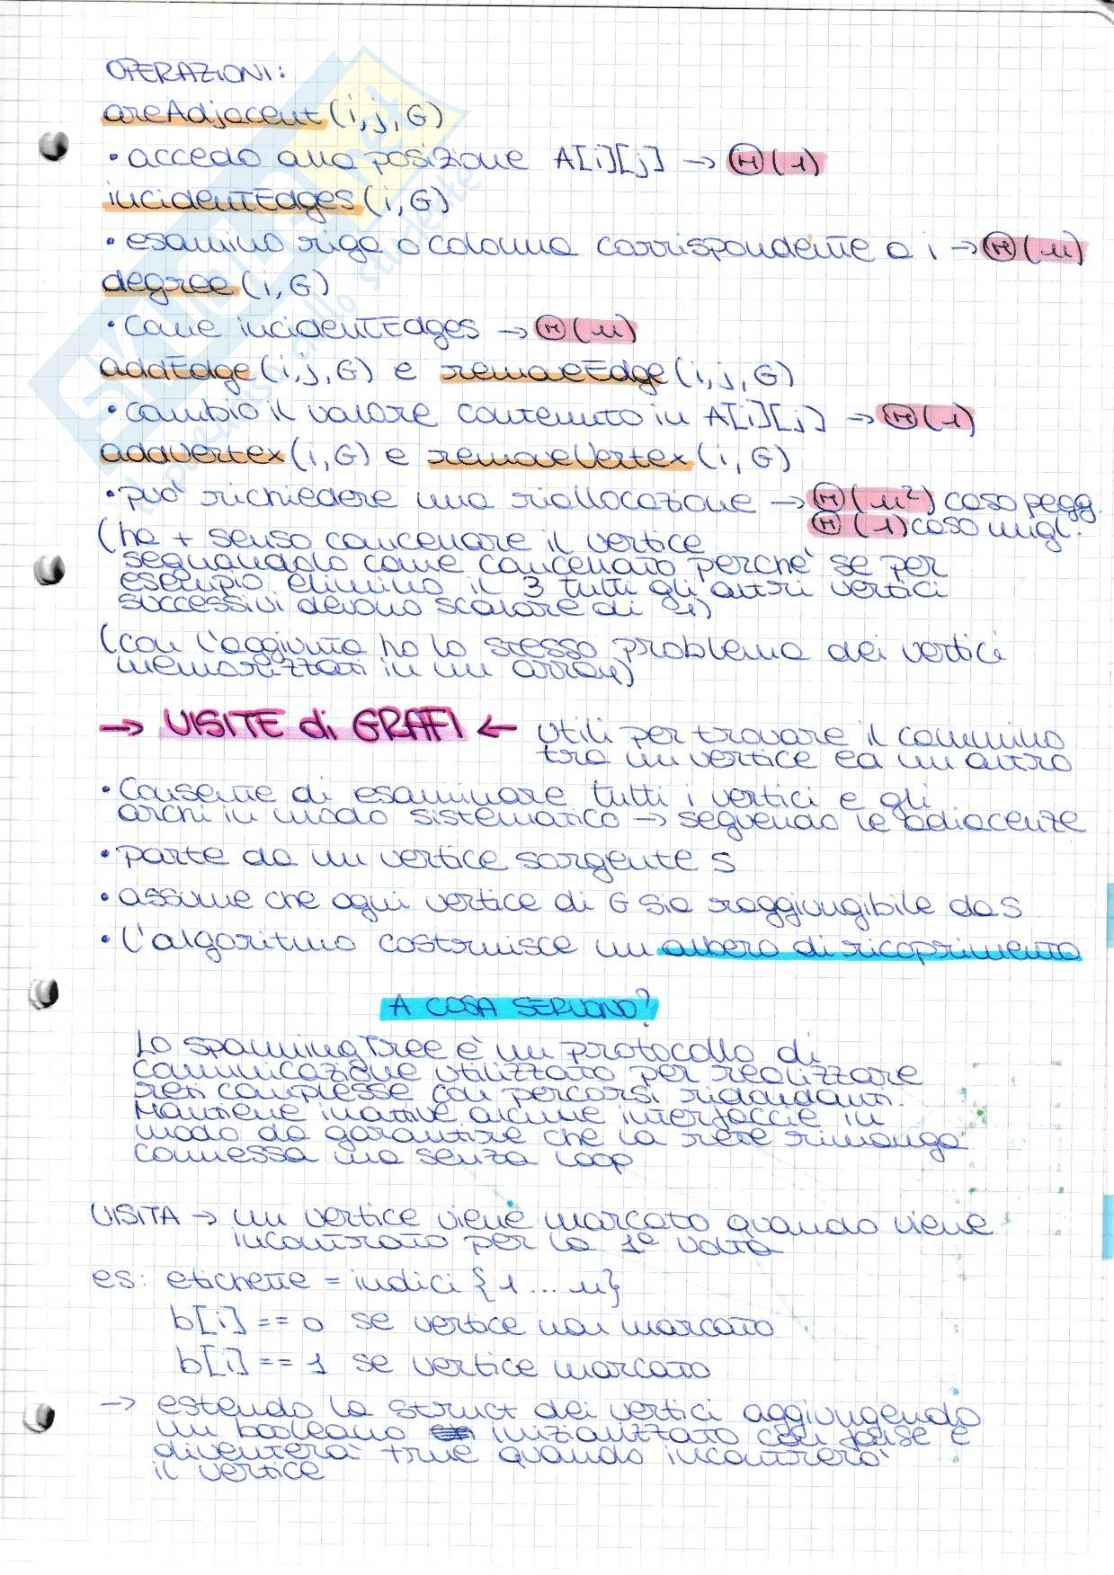 OPERAZIONI:
areAdjacent (i, j, G)
• accedo alla posizione A[i][j] → Θ(1)
incidentEdges (i, G)
• esamino riga o colonna corrispondente a i → Θ(n)
degree (i, G)
• come incidentEdges → Θ(n)
addEdge (i, j, G) e removeEdge (i, j, G)
• cambio il valore contenuto in A[i][j] → Θ(1)
addVertex (i, G) e removeVertex (i, G)
• può richiedere una riallocazione → Θ(n²) caso pegg.
Θ(1) caso migl.
(ha + senso cancellare il vertice
segnandolo come cancellato perchè se per
esempio elimino il 3 tutti gli altri vertici
successivi devono scalare di 1)
(con l'aggiunta ho lo stesso problema dei vertici
memorizzati in un array)
→ VISITE di GRAFI ← utili per trovare il cammino
tra un vertice ed un altro
• Consente di esaminare tutti i vertici e gli
archi in modo sistematico → seguendo le adiacenze
• parte da un vertice sorgente S
• assume che ogni vertice di G sia raggiungibile da S
• l'algoritmo costruisce un albero di ricoprimento
A COSA SERVONO?
Lo spanningTree è un protocollo di
comunicazione utilizzato per realizzare
reti complesse con percorsi ridondanti.
Mantiene inattive alcune interfaccie in
modo da garantire che la rete rimanga
connessa ma senza loop
VISITA → un vertice viene marcato quando viene
incontrato per la 1ª volta
es: etichette = indici {1 ... n}
b[i] == 0 se vertice non marcato
b[i] == 1 se vertice marcato
→ estendo la struct dei vertici aggiungendo
un booleano inizializzato con false e
diventerà true quando incontrerò
il vertice